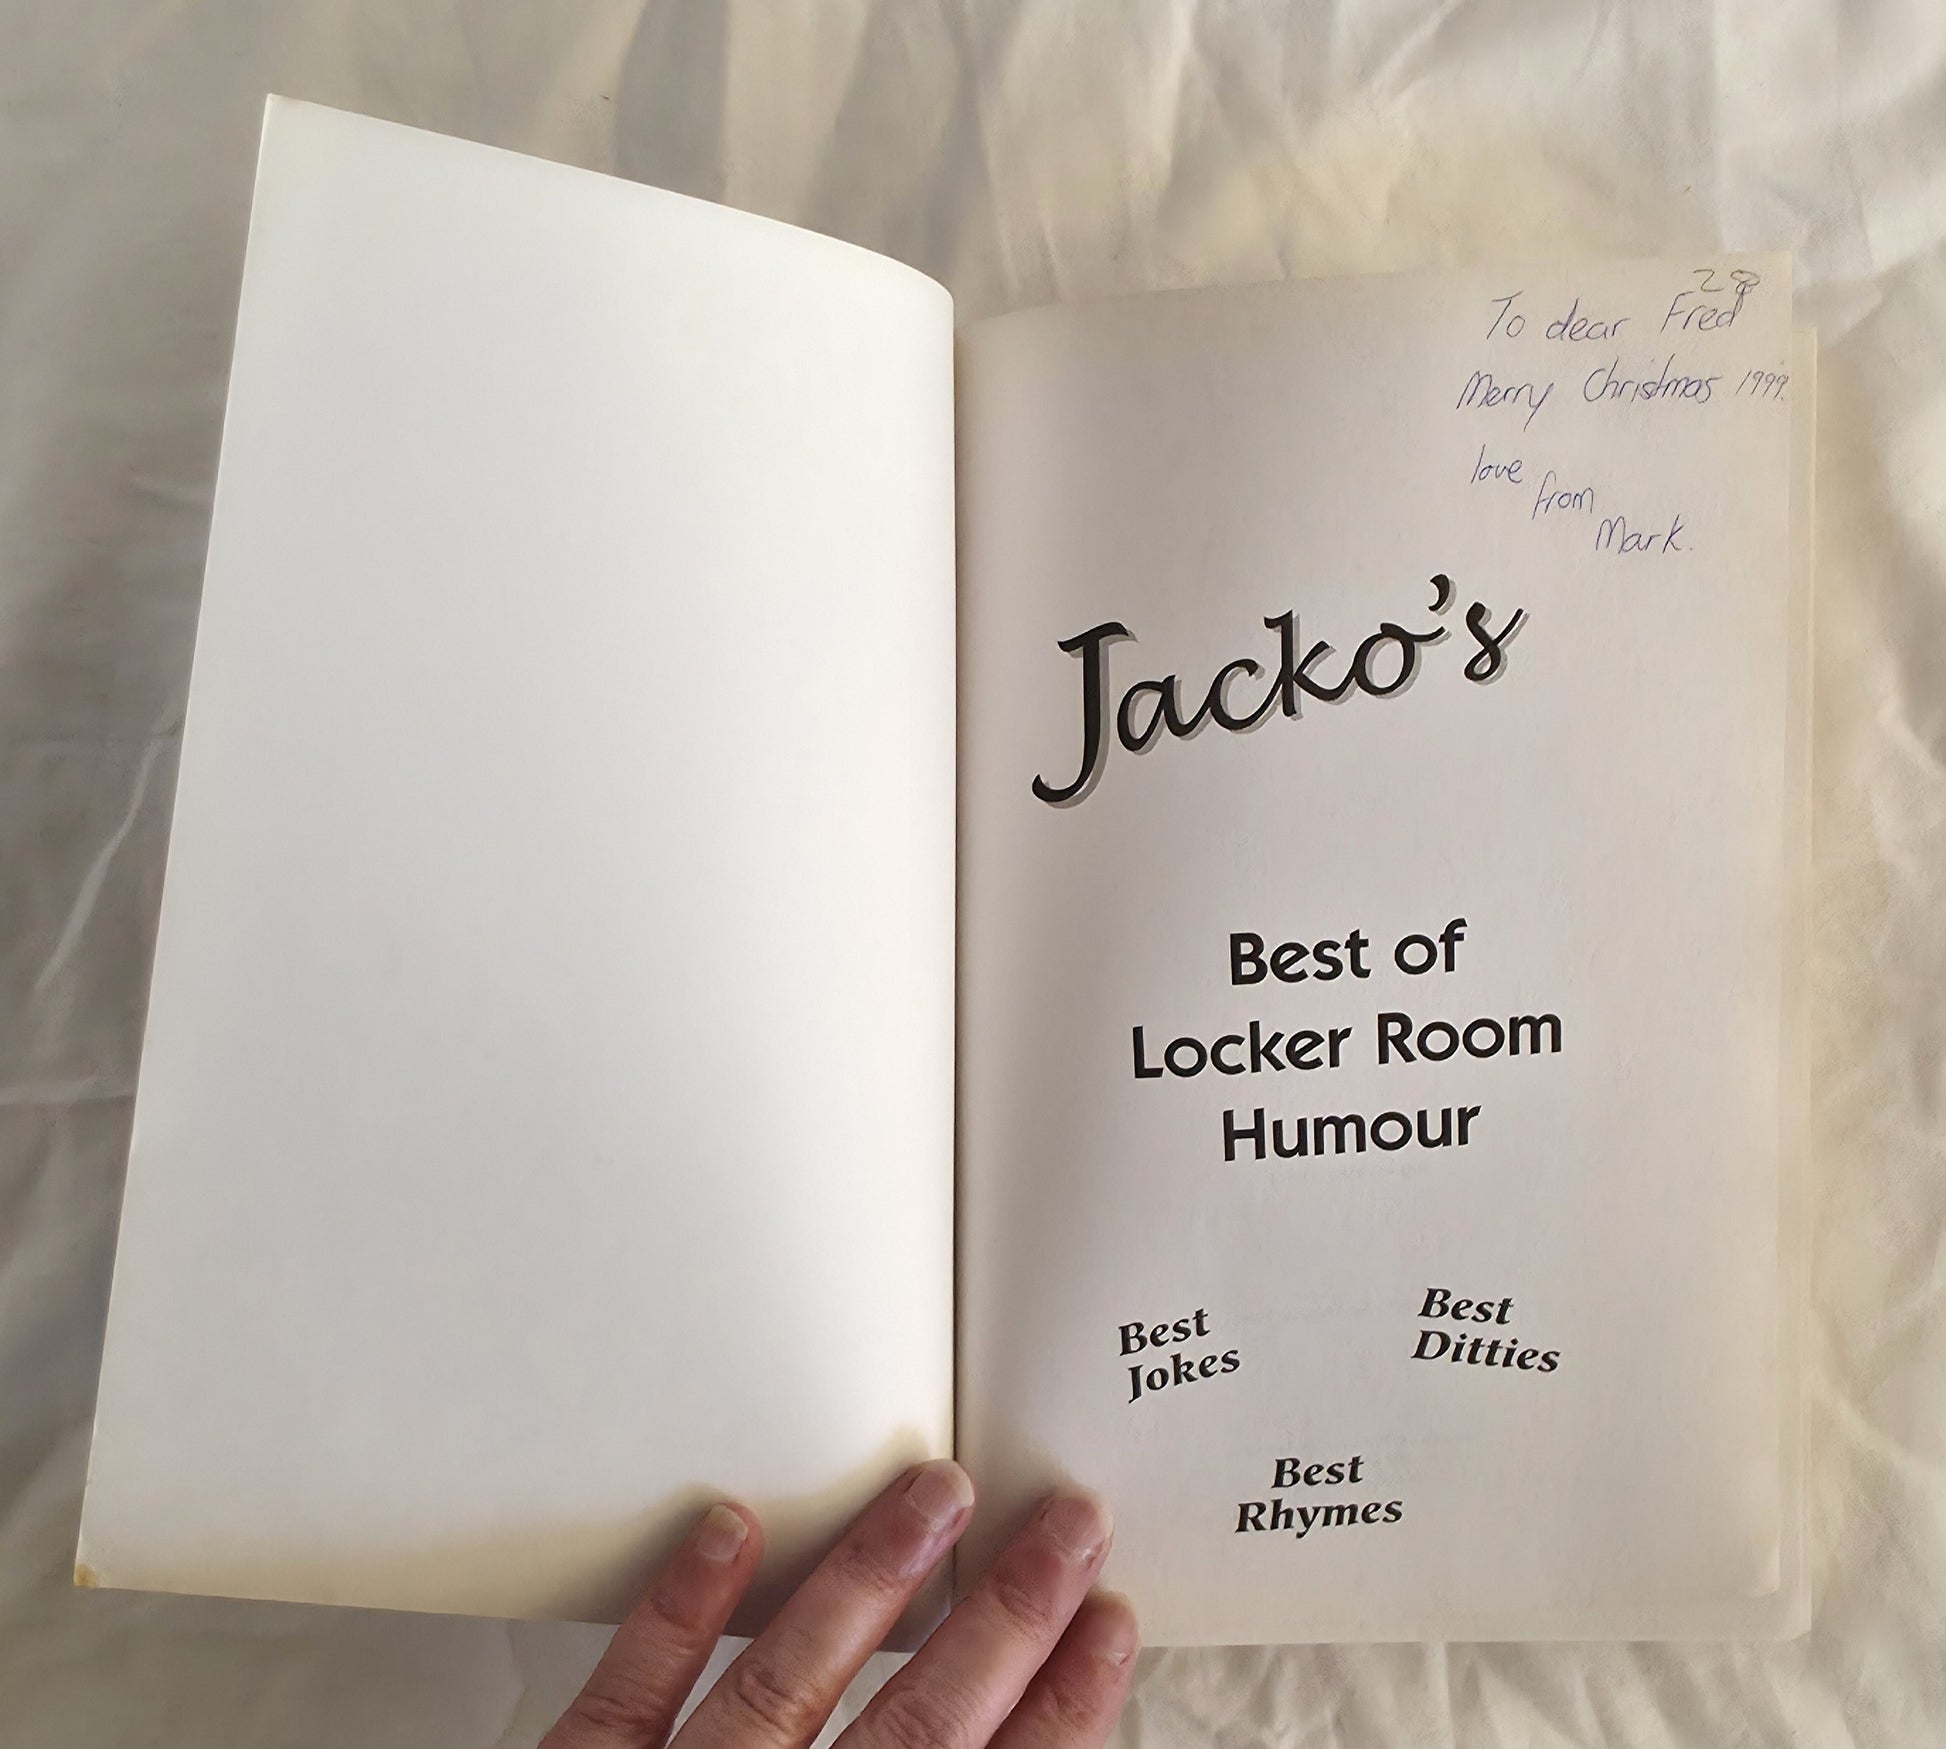 28
To dear Fred
Merry Christmas 1999.
love
from
Mark.
Jacko's
Best of
Locker Room
Humour
Best
Jokes
Best
Ditties
Best
Rhymes